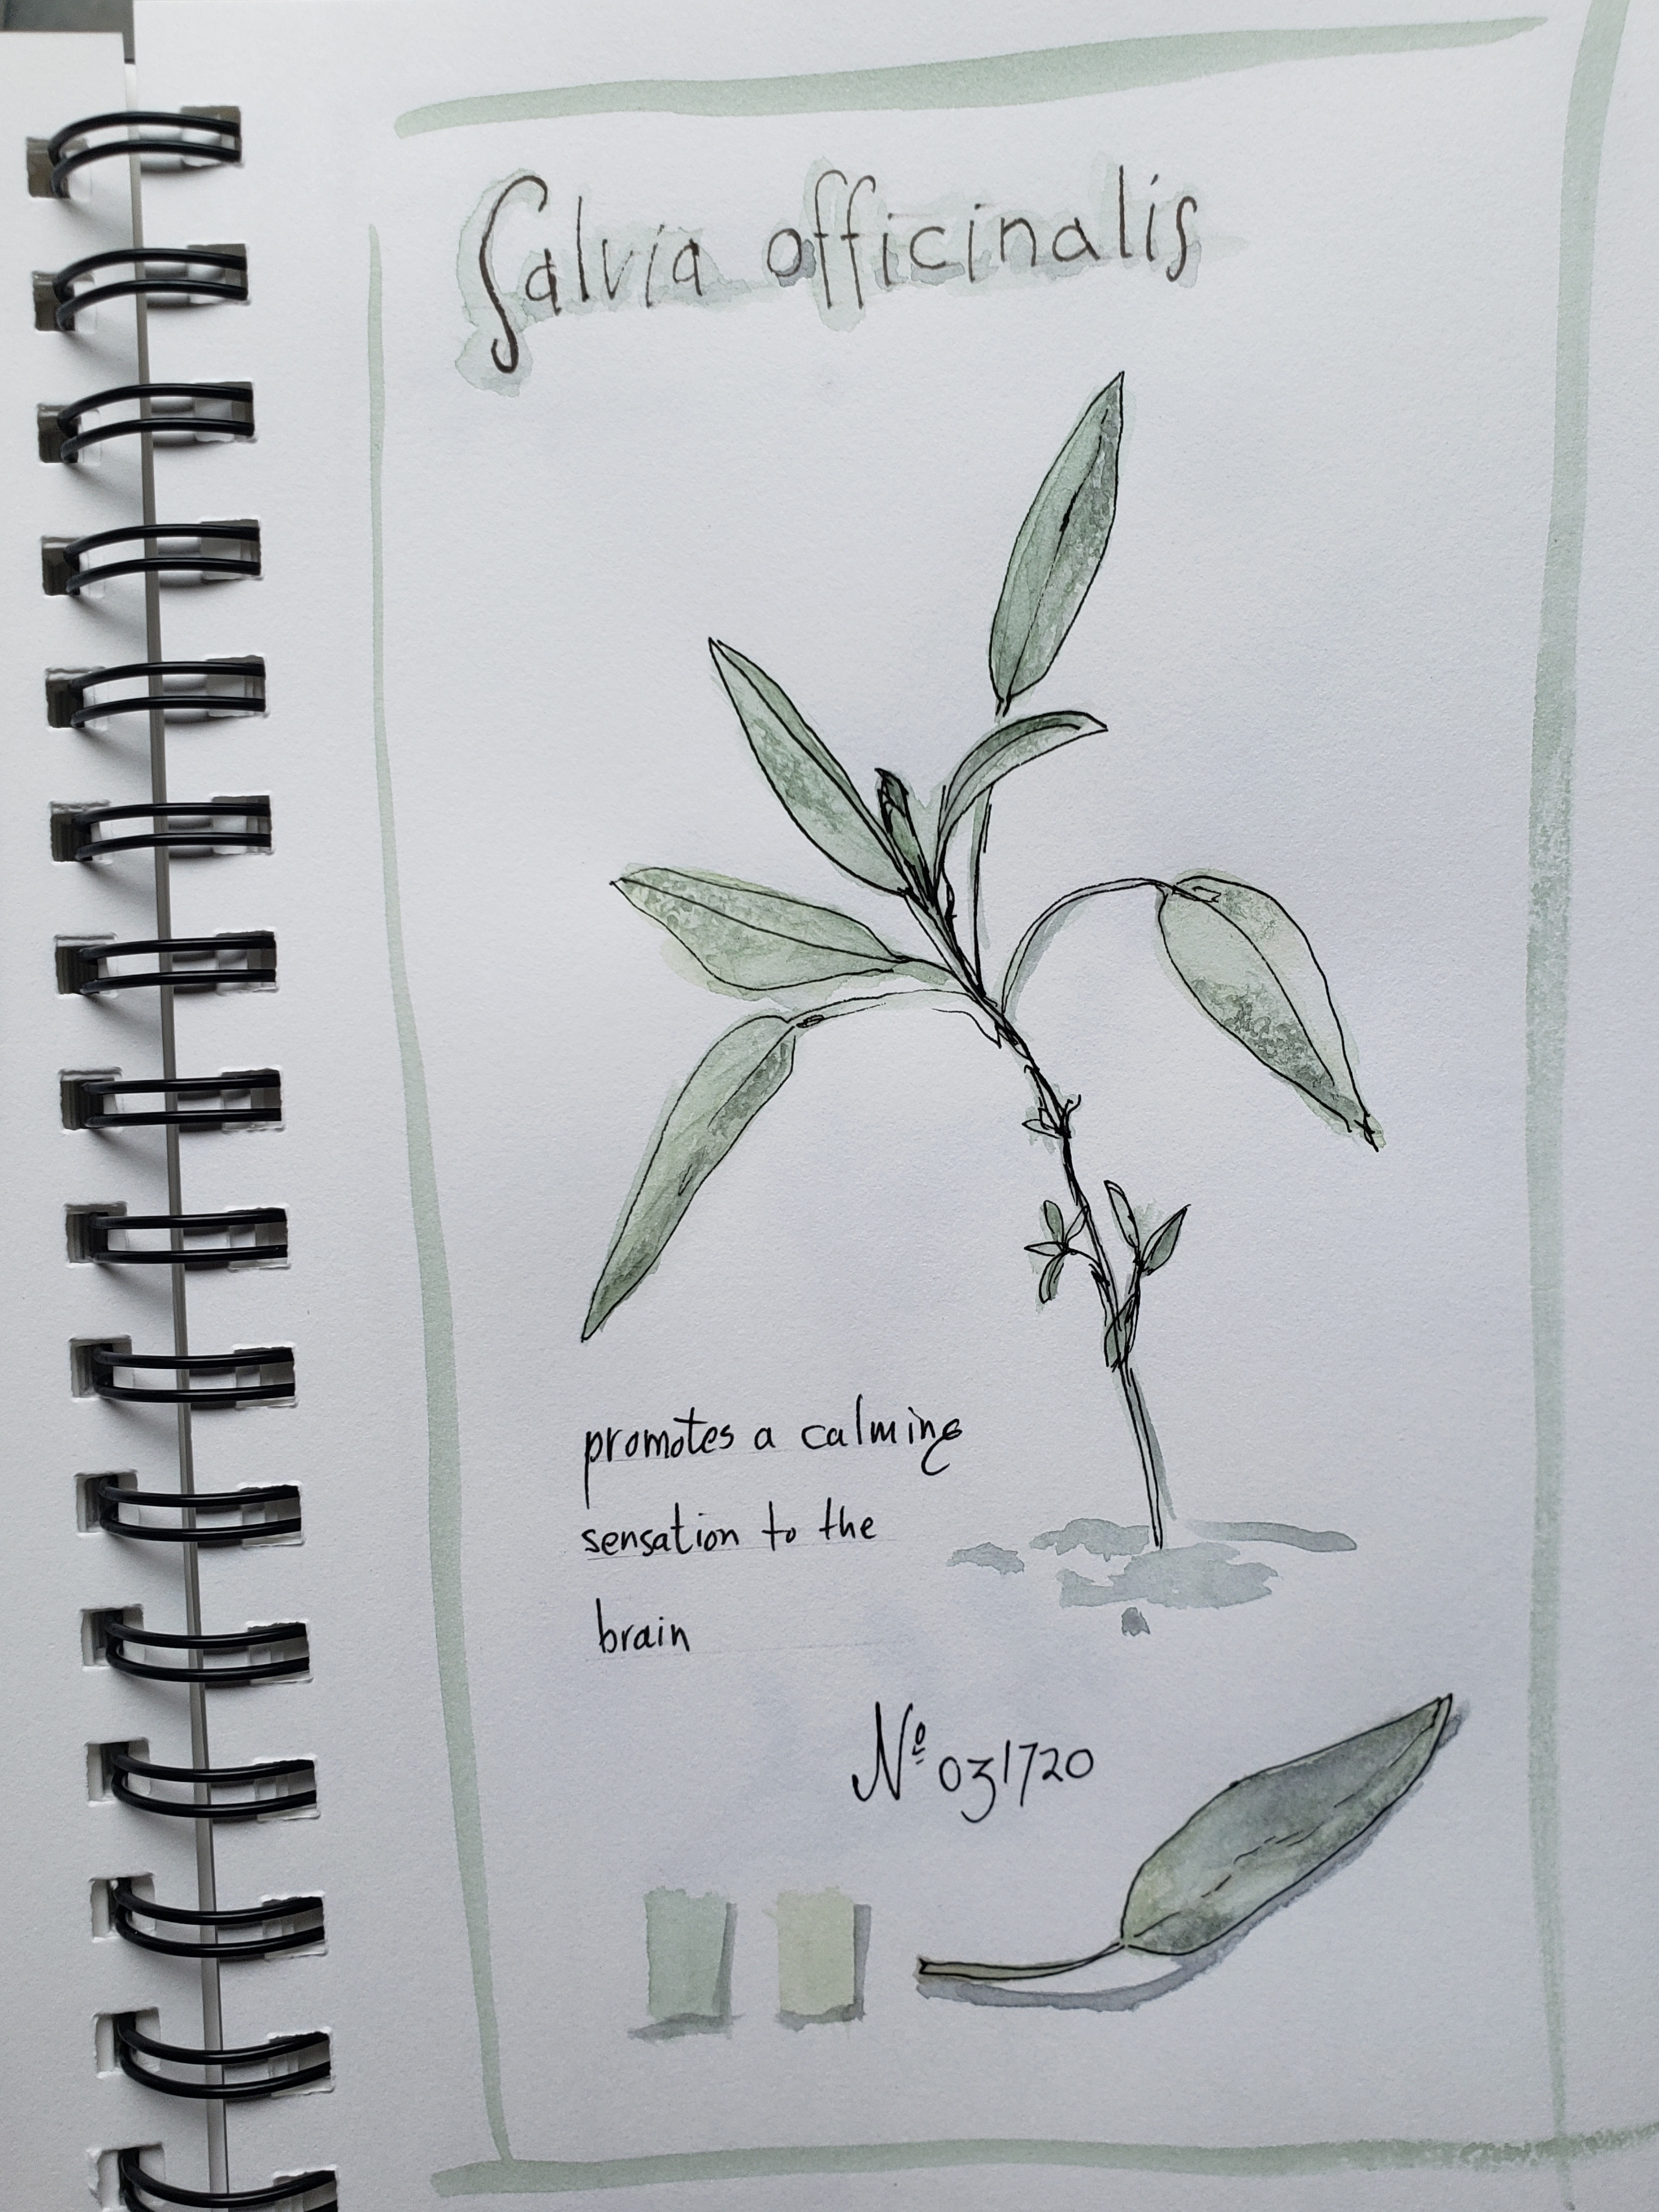 Salvia officinalis
promotes a calming
sensation to the
brain
Nº 031720